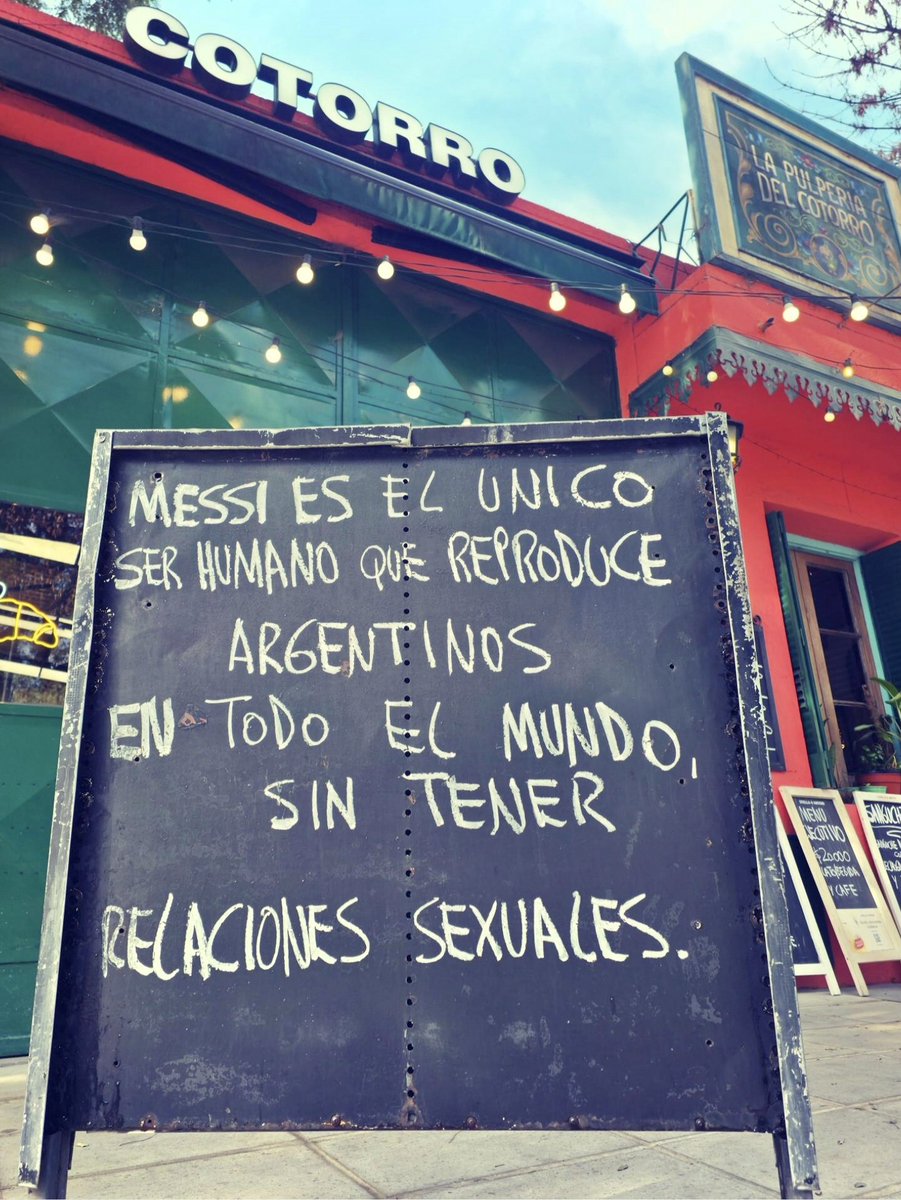 COTORRO
LA PULPERIA
DEL COTORRO
MESSI ES EL UNICO
SER HUMANO QUE REPRODUCE
ARGENTINOS
EN TODO EL MUNDO,
SIN TENER
RELACIONES SEXUALES.
MENU
$20.000
Y CAFE